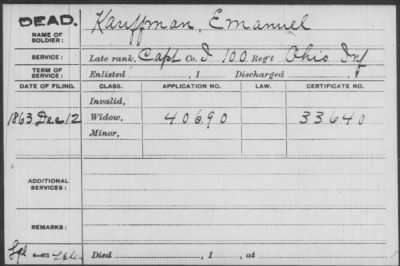 DEAD. Kauffman, Emanuel
NAME OF SOLDIER:
SERVICE: Late rank, Capt Co. I 100 Reg't Ohio Inf
TERM OF SERVICE: Enlisted , 1 Discharged , 1
DATE OF FILING. CLASS. APPLICATION NO. LAW. CERTIFICATE NO.
Invalid,
1863 Dec 12 Widow, 40690 33640
Minor,
ADDITIONAL SERVICES:
REMARKS:
Died , 1 , at